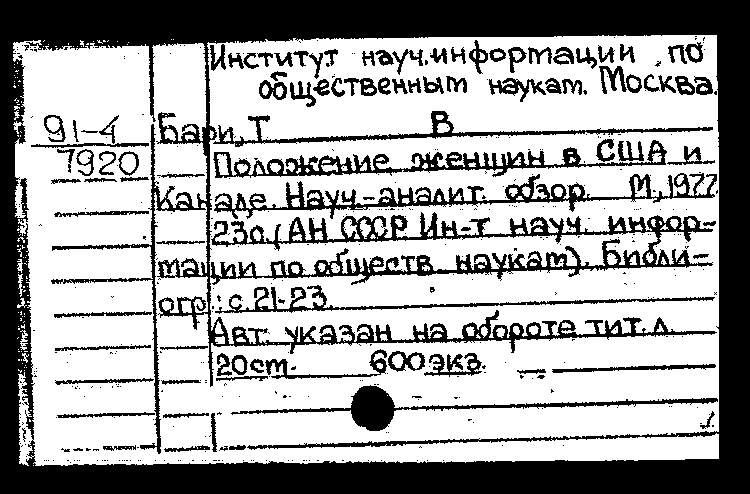 Институт науч.информации по
общественным наукам. Москва.
91-4 Бари, Т В
7920 Положение женщин в США и
Канаде. Науч.-аналит. обзор. М., 1977
23с. (АН СССР Ин-т науч. инфор-
мации по обществ. наукам). Библи-
огр.: с. 21-23.
Авт. указан на обороте тит. л.
20ст. 600 экз.